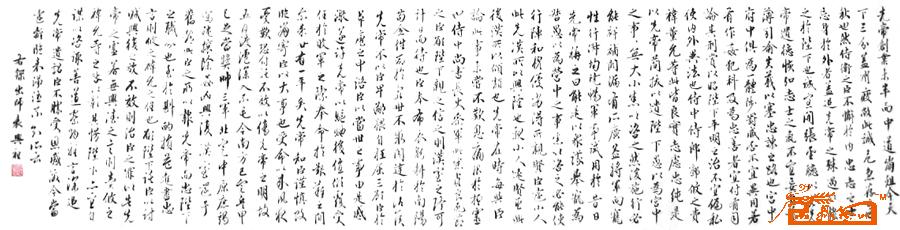 先帝創業未半而中道崩殂今天
下三分益州疲敝此誠危急存亡之
秋也然侍衛之臣不懈於內忠志之士
忘身於外者蓋追先帝之殊遇欲報
之於陛下也誠宜開張聖聽以光先
帝遺德恢弘志士之氣不宜妄自菲
薄引喻失義以塞忠諫之路也宮中
府中俱為一體陟罰臧否不宜異同若
有作姦犯科及為忠善者宜付有司
論其刑賞以昭陛下平明之治不宜偏私
使內外異法也侍中侍郎郭攸之費
禕董允等此皆良實志慮忠純是
以先帝簡拔以遺陛下愚以為宮中
之事事無大小悉以咨之然後施行必
能裨補闕漏有所廣益將軍向寵
性行淑均曉暢軍事試用於昔日
先帝稱之曰能是以眾議舉寵為
督愚以為營中之事悉以咨之必能使
行陣和穆優劣得所親賢臣遠小人
此先漢所以興隆也親小人遠賢臣此
後漢所以傾頹也先帝在時每與臣
論此事未嘗不歎息痛恨於桓靈
也侍中尚書長史參軍此悉貞亮死節
之臣也願陛下親之信之則漢室之隆可
計日而待也臣本布衣躬耕於南陽
苟全性命於亂世不求聞達於諸侯
先帝不以臣卑鄙猥自枉屈三顧臣於草
廬之中諮臣以當世之事由是感
激遂許先帝以驅馳後值傾覆受
任於敗軍之際奉命於危難之間爾
來廿有一年矣先帝知臣謹慎故
臨崩寄臣以大事也受命以來夙夜
憂歎恐託付不效以傷先帝之明故
五月渡瀘深入不毛今南方已定兵甲
已足當獎帥三軍北定中原庶竭
駑鈍攘除姦凶興復漢室還于
舊都此臣所以報先帝而忠陛下
之職分也至於斟酌損益進盡忠
言則攸之禕允之任也願陛下託臣以討
賊興復之效不效則治臣之罪以告先
帝之靈若無興德之言則責攸之
禕允等之咎以彰其慢陛下亦宜自
謀以諮諏善道察納雅言深追
先帝遺詔臣不勝受恩感激今當
遠離臨表涕泣不知所云
右錄出師表